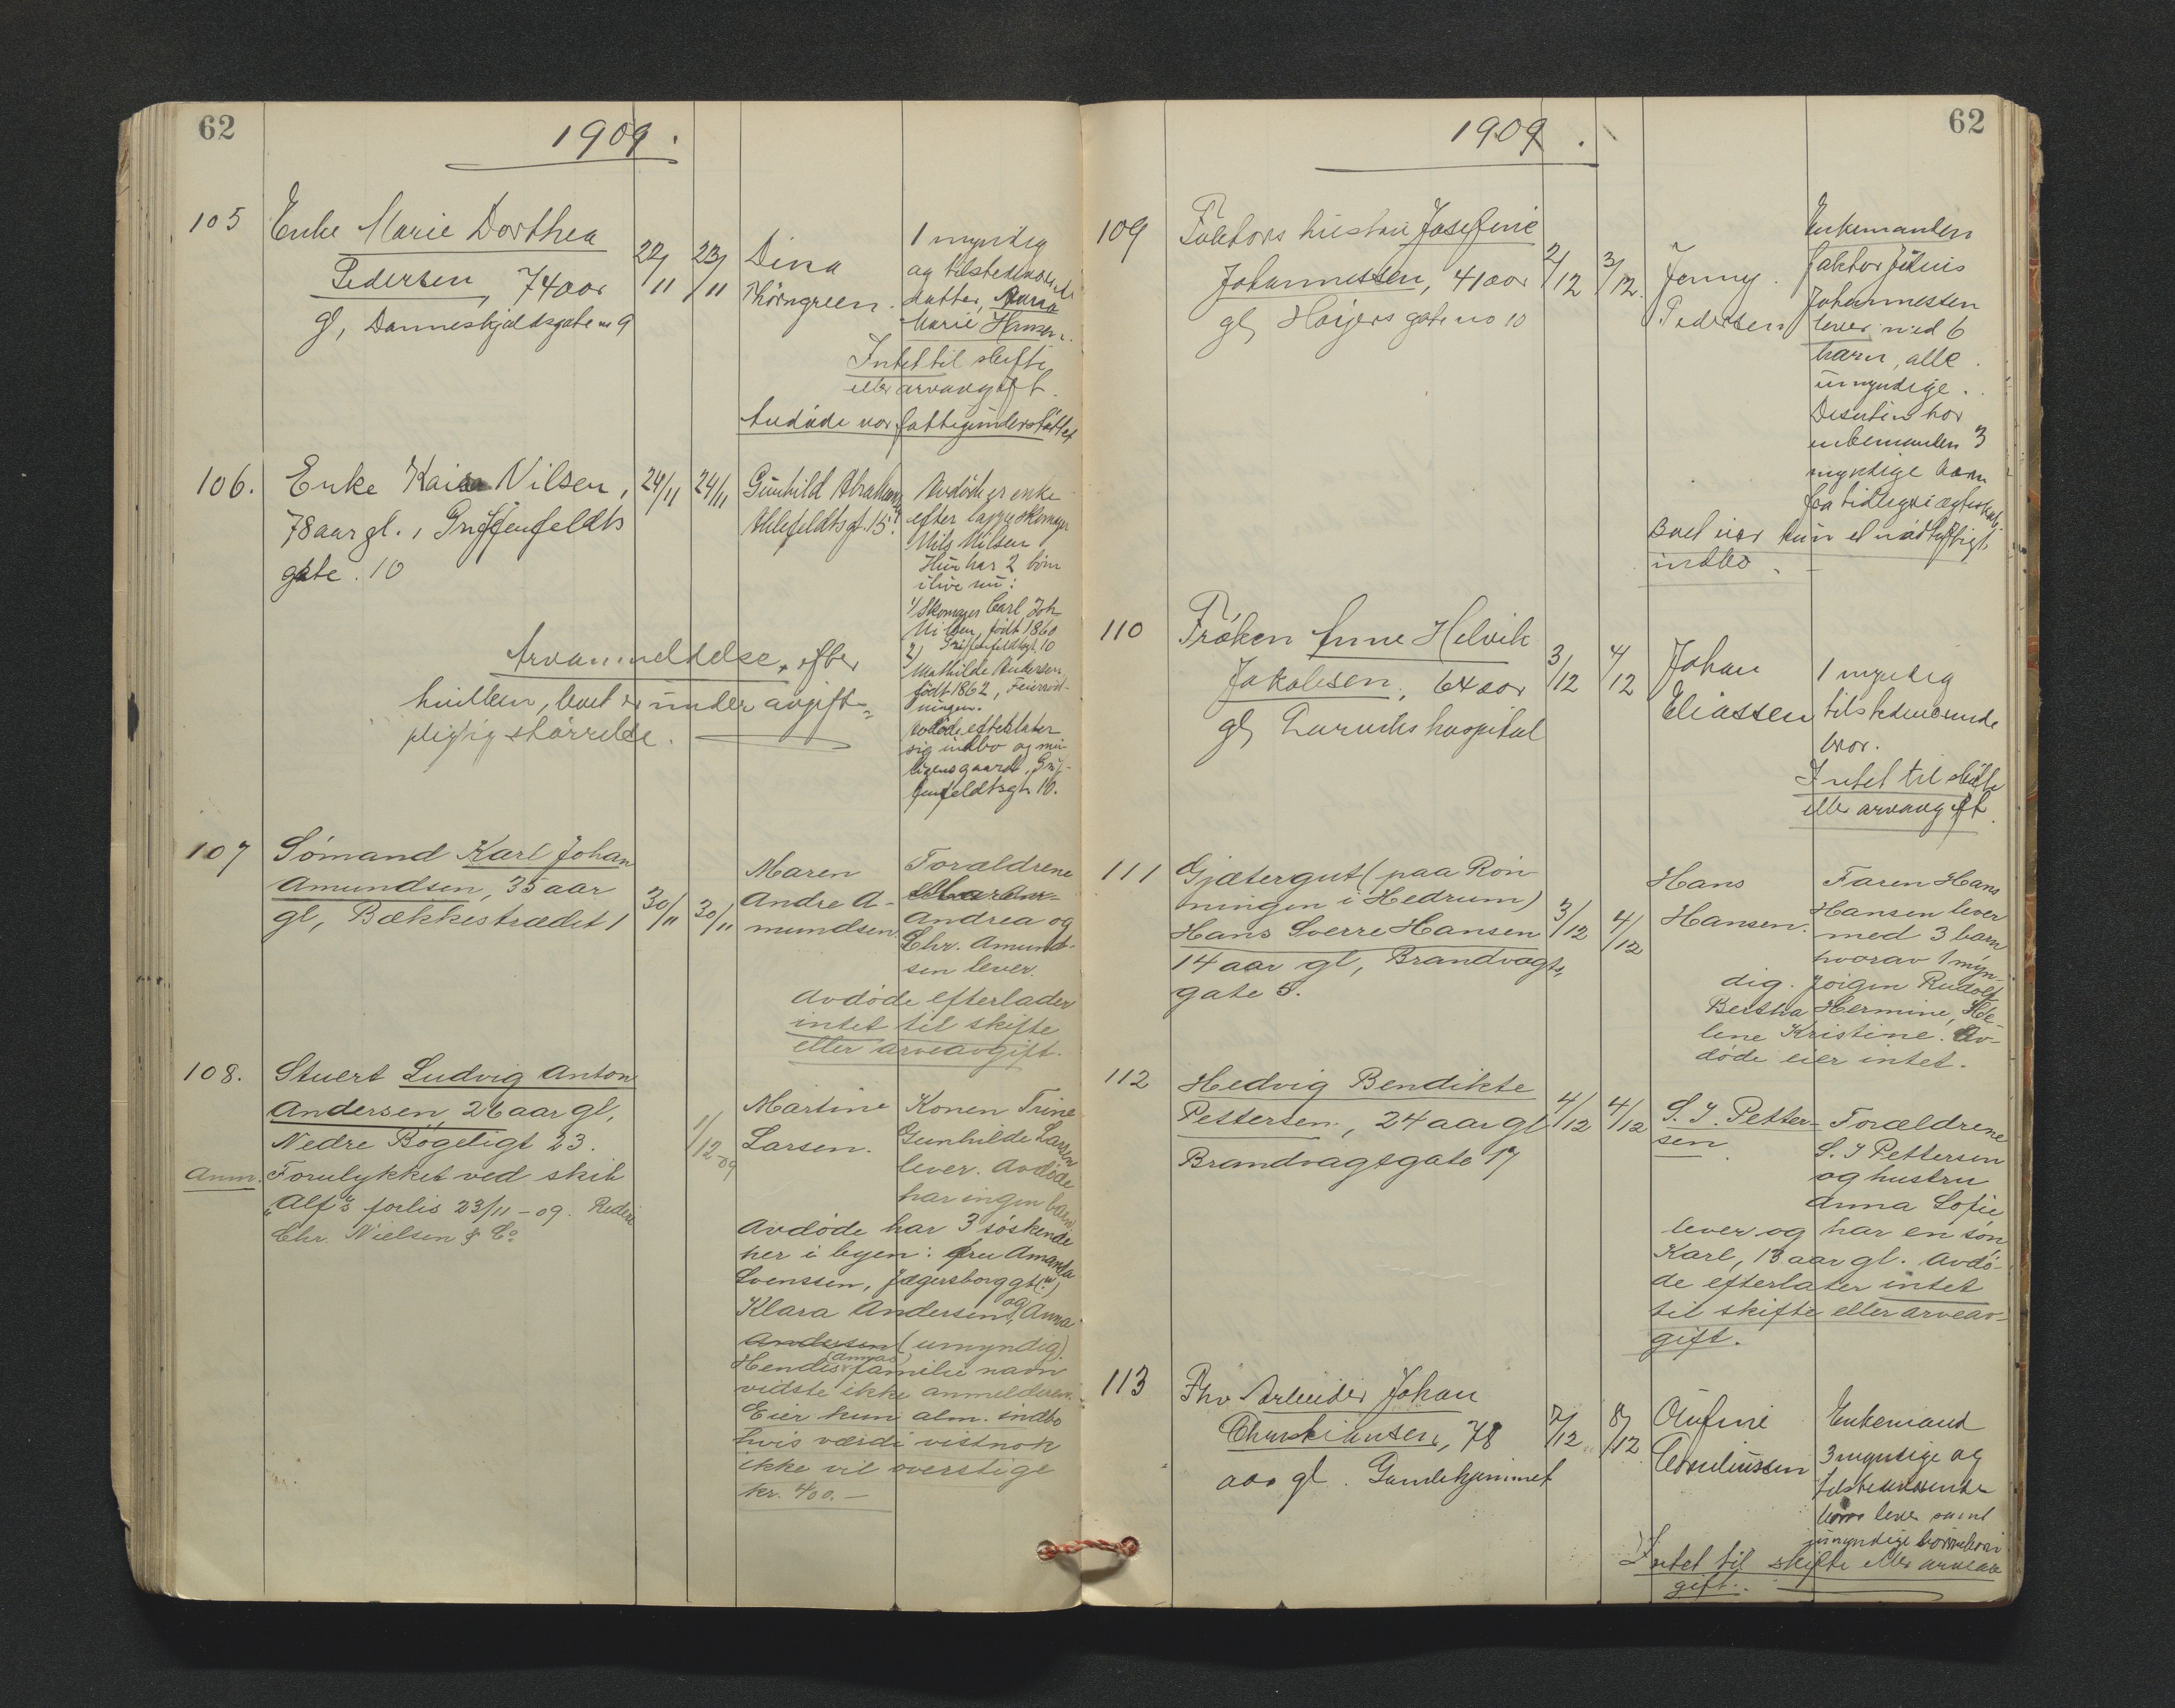 62
1909.
105
Enke Marie Dorthea
Pedersen, 74 aar
gl, Danneskjoldsgate no 9
22/11
23/11
Dina
Thorngreen.
1 myndig
og tilstedeværende
datter,
Marie Hansen.
Intet til skifte
eller arveavgift.
Avdøde var fattigunderstøttet
106.
Enke Kaisa Nilsen,
78 aar gl., Griffenfeldts
gate. 10
24/11
24/11
Gunhild
Ahlefeldtsgt. 15.
Avdøde er enke
efter
Nils Nilsen
Hun har 2 børn
ilive nu:
1) Skomager Carl Joh.
Nilsen, født 1860
2) Griffenfeldtsgt. 10
Mathilde Andersen
født 1862,
Avdøde efterlater
sig indbo og
Grif-
fenfeldtsgt. 10.
Arvanmeldelse, efter
hvilken, boet er under avgifts-
pligtig størrelse.
107
Sømand Karl Johan
Amundsen, 35 aar
gl, Bækkestrædet 1
30/11
30/11
Maren
Andre A-
mundsen.
Forældrene
Andrea og
Chr. Amund-
sen lever.
Avdøde efterlader
intet til skifte
eller arveavgift.
108.
Stuert Ludvig Anton
Andersen, 26 aar gl,
Nedre Bøgeligt 23.
Anm. Forulykket ved skib
"Alf"s forlis 23/11-09. Rederi
Chr. Nielsen & Co
1/12-09
Martine
Larsen.
Konen Trine
Gunhilde Larsen
lever. Avdøde
har ingen barn
Avdøde har 3 søskende
her i byen: fru Amanda
Svenssen, Jægersborggt(?)
Klara Andersen og Anna
Andersen (umyndig).
Hendes (Annas) familie navn
vidste ikke anmelderen.
Eier kun alm. indbo
hvis værdi vistnok
ikke vil overstige
kr. 400.-
62
1909.
109
Faktors hustru Josefine
Johannessen, 41 aar
gl, Høyers gate no 10
2/12
3/12.
Jenny
Pedersen
Enkemanden
faktor Julius
Johannessen
lever med 6
barn, alle
umyndige.
Desuten har
enkemanden 3
myndige barn
fra tidligere ægteskab.
Boet eier kun et nødtørftigt
indbo.
110
Frøken Anne Helvik
Jakobsen, 64 aar
gl, Larviks hospital
3/12
4/12
Johan
Eliassen
1 myndig
tilstedeværende
bror.
Intet til skifte
eller arveavgift.
111
Gjætergut (paa Røn-
ningen i Hedrum)
Hans Sverre Hansen
14 aar gl, Brandvagts-
gate 5.
3/12
4/12
Hans
Hansen.
Faren Hans
Hansen lever
med 3 barn
hvorav 1 myn-
dig. Jørgen Rudolf
Bertha Hermine, He-
lene Kristine. Av-
døde eier intet.
112
Hedvig Bendikte
Pettersen, 24 aar gl
Brandvagtgate 17
4/12
4/12
S. J. Petter-
sen
Forældrene
S. J Pettersen
og hustru
Anna Sofie
lever og har en søn
Karl, 13 aar gl. Avdø-
de efterlater intet
til skifte eller arveav-
gift.
113
Fhv Arbeider Johan
Christiansen, 78
aar gl. Gamlehjemmet
7/12
8/12
Olufine
Corneliussen
Enkemand
3 myndige og
tilstedeværende
børn lever samt
umyndige børnebørn
Intet til skifte eller arveav
gift.